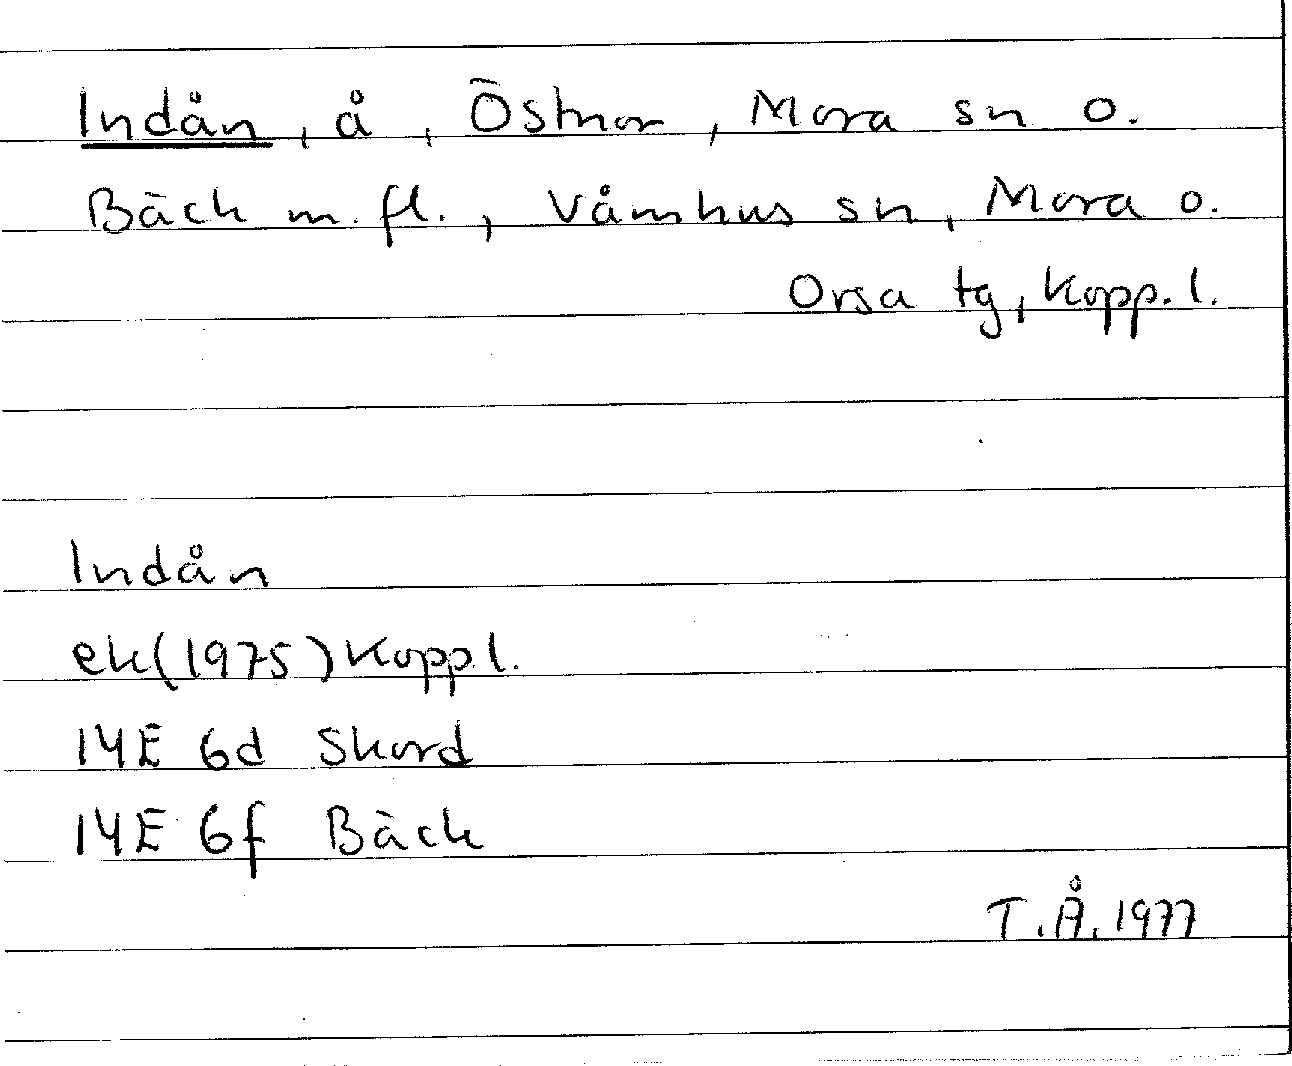 Indån, å, Östnor, Mora sn o.
Bäck m. fl., Våmhus sn, Mora o.
Orsa tg, Kopp. l.
Indån
ek(1975) Kopp l.
14E 6d Skord
14E 6f Bäck
T. Å. 1977